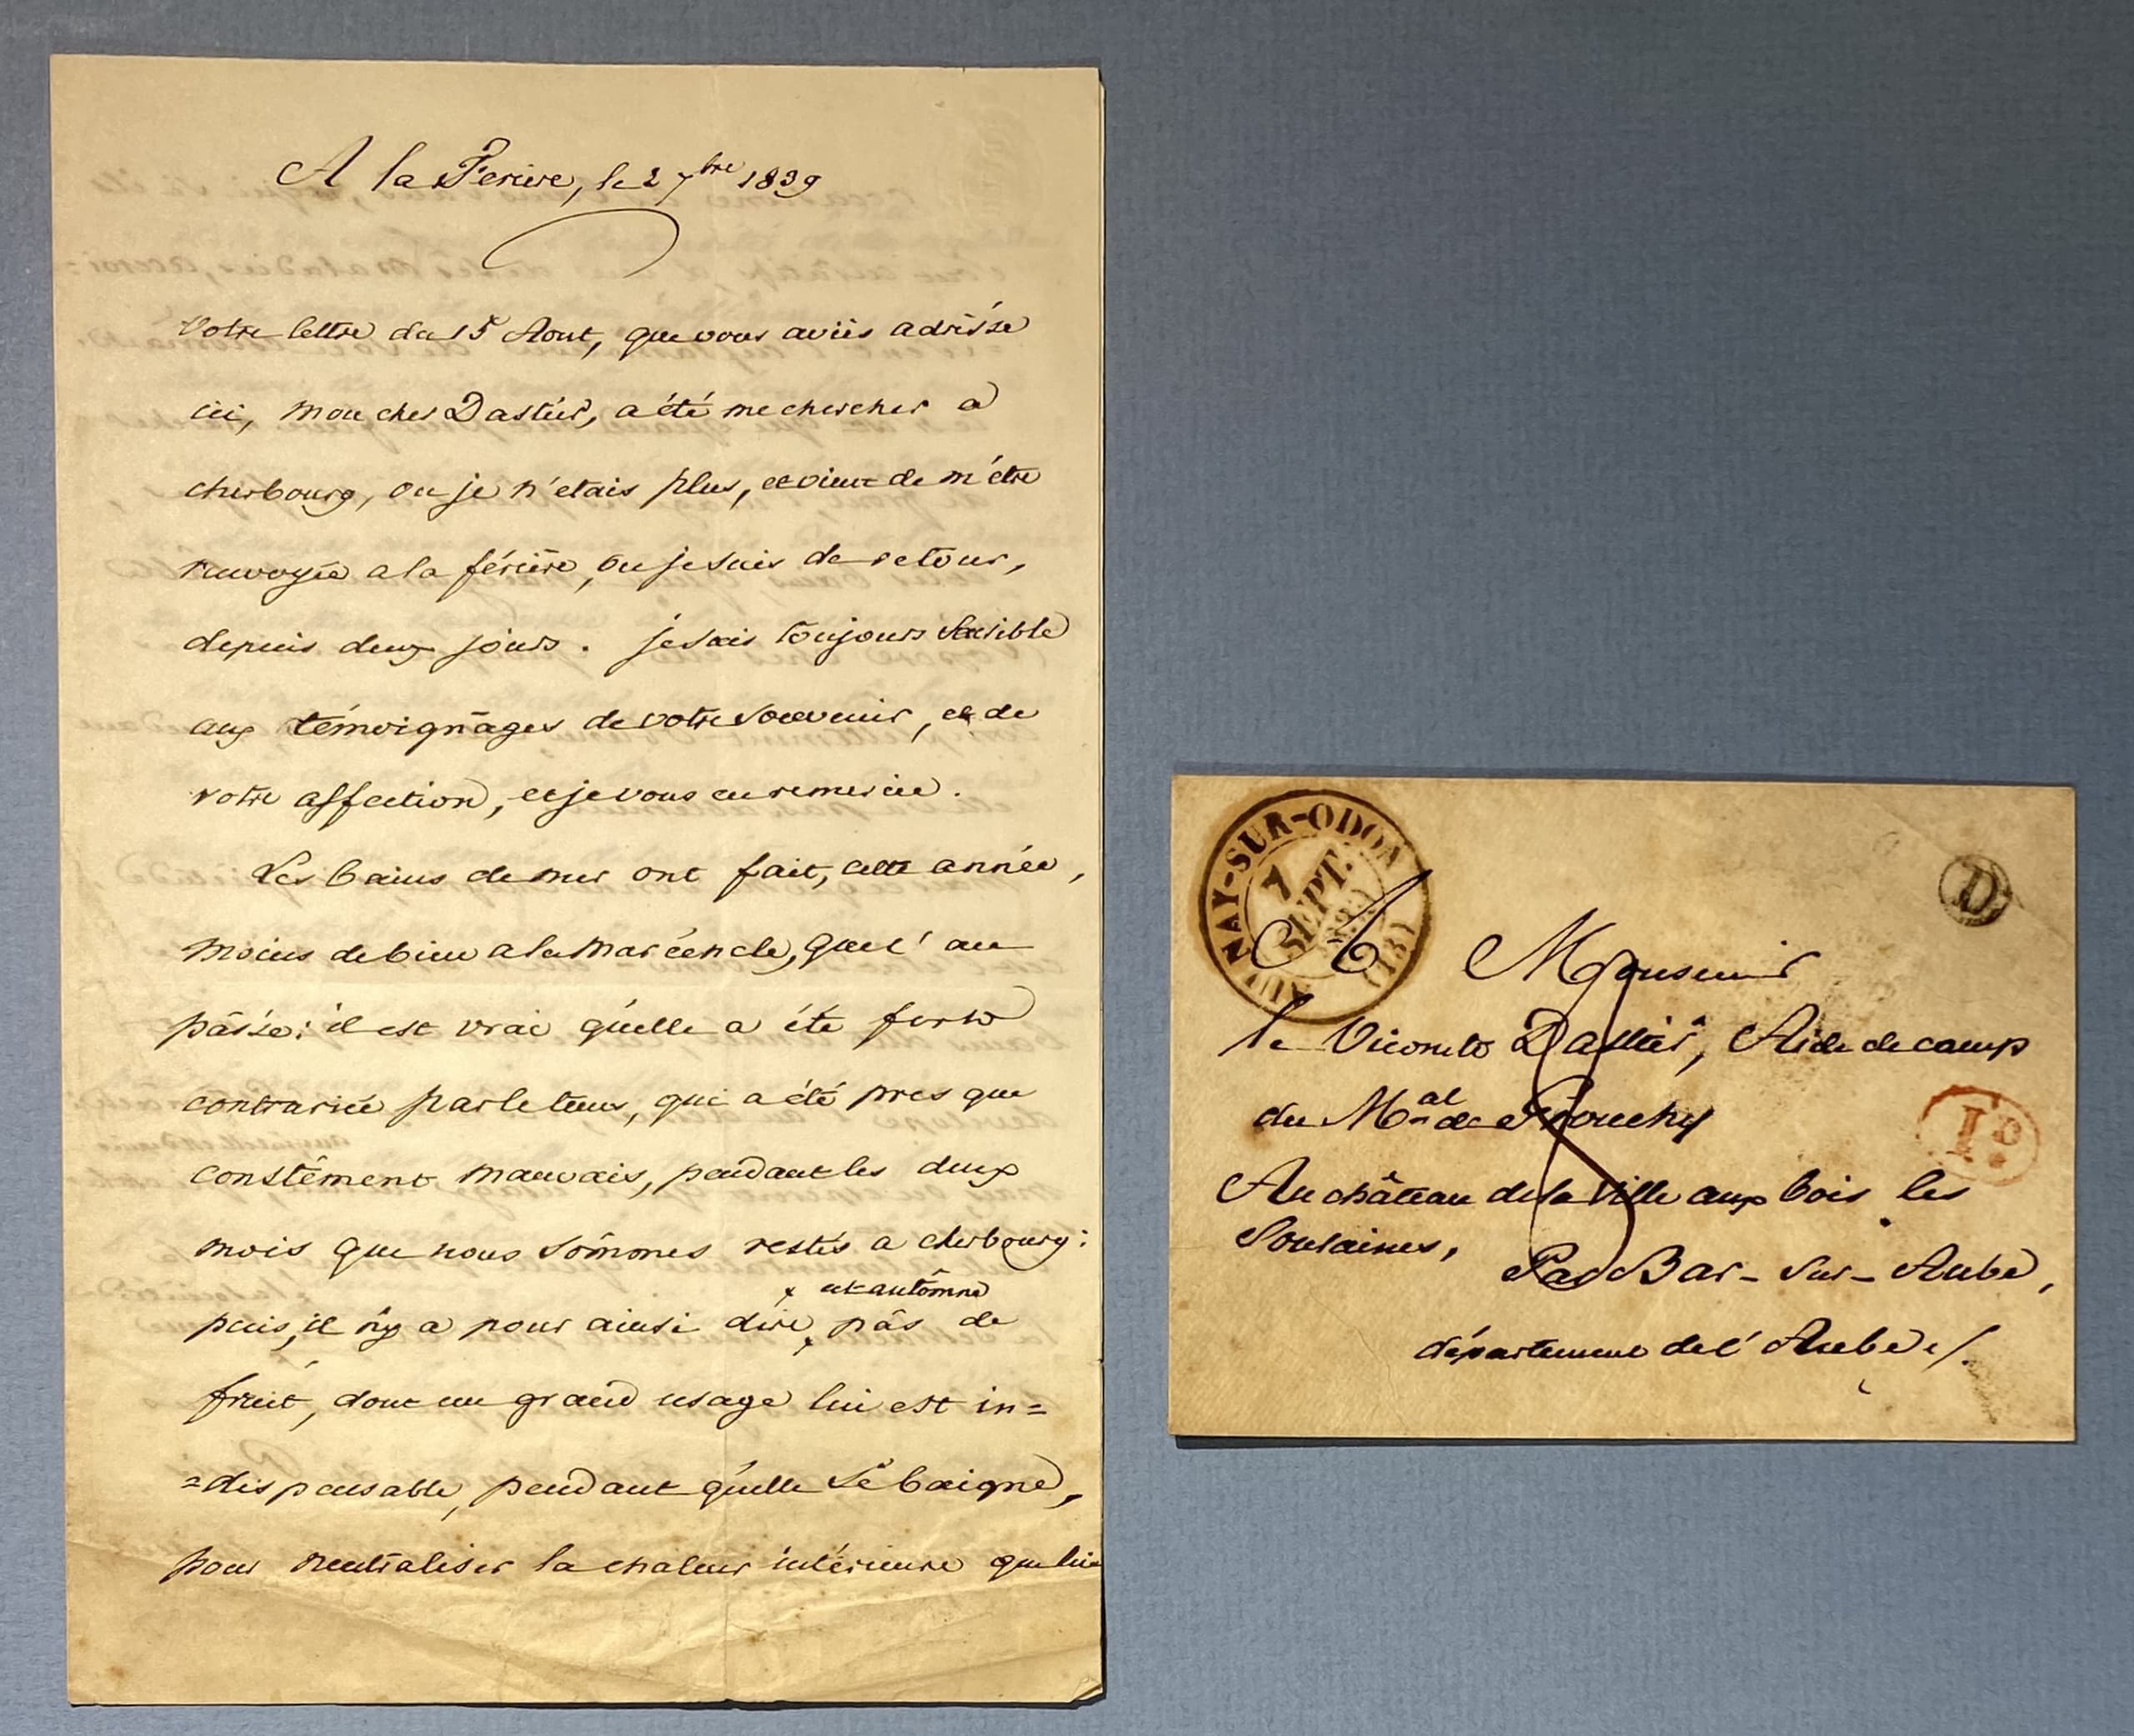 A la Ferière, le 2 7bre 1839
Votre lettre du 15 Aout, que vous aviés adréssée
ici, mon cher Dastier, a été me chercher a
cherbourg, ou je n'etais plus, et vient de m'être
renvoyée a la férière, ou je suis de retour,
depuis deux jours. je suis toujours sensible
aux témoignages de votre souvenir, et de
votre affection, et je vous en remercie.
Les bains de mer ont fait, cette année,
moins de bien a la maréchale, que l'an
pâssé: il est vrai qu'elle a été fort
contrariée par le tems, qui a été pres que
constâment mauvais, pendant les deux
mois que nous sômmes restés a cherbourg:
puis, il n'y a pour ainsi dire, pâs de
cet autômne
fruit, dont un grand usage lui est in=
=dispensable, pendant qu'elle se baigne,
pour neutraliser la chaleur intérieure que lui
AUNAY-SUR-ODON
7
SEPT.
1839
(13)
D
A Monsieur
le Vicomte Dastier, Aide de camp
du Mal de Grouchy
1D
Au château de la ville aux bois les
Soulaines,
Par Bar-sur-Aube,
département de l'Aube